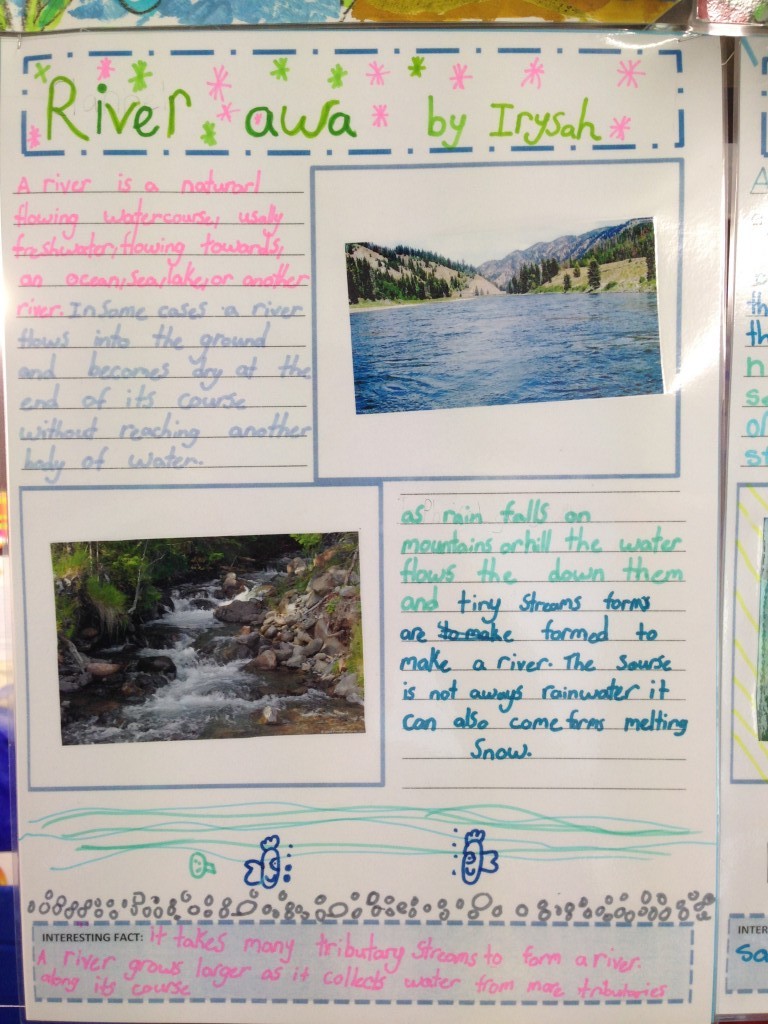 River awa by Irysah
A river is a naturarl
flowing watercourse, usally
freshwater, flowing towards,
an ocean, sea, lake, or another
river. In some cases a river
flows into the ground
and becomes dry at the
end of its course
without reaching another
body of water.
as rain falls on
mountains or hill the water
flows the down them
and tiny streams forms
are to make formed to
make a river. The sourse
is not aways rainwater it
can also come forms melting
snow.
INTERESTING FACT: it takes many tributary streams to form a river.
A river grows larger as it collects water from more tributaries
along its course